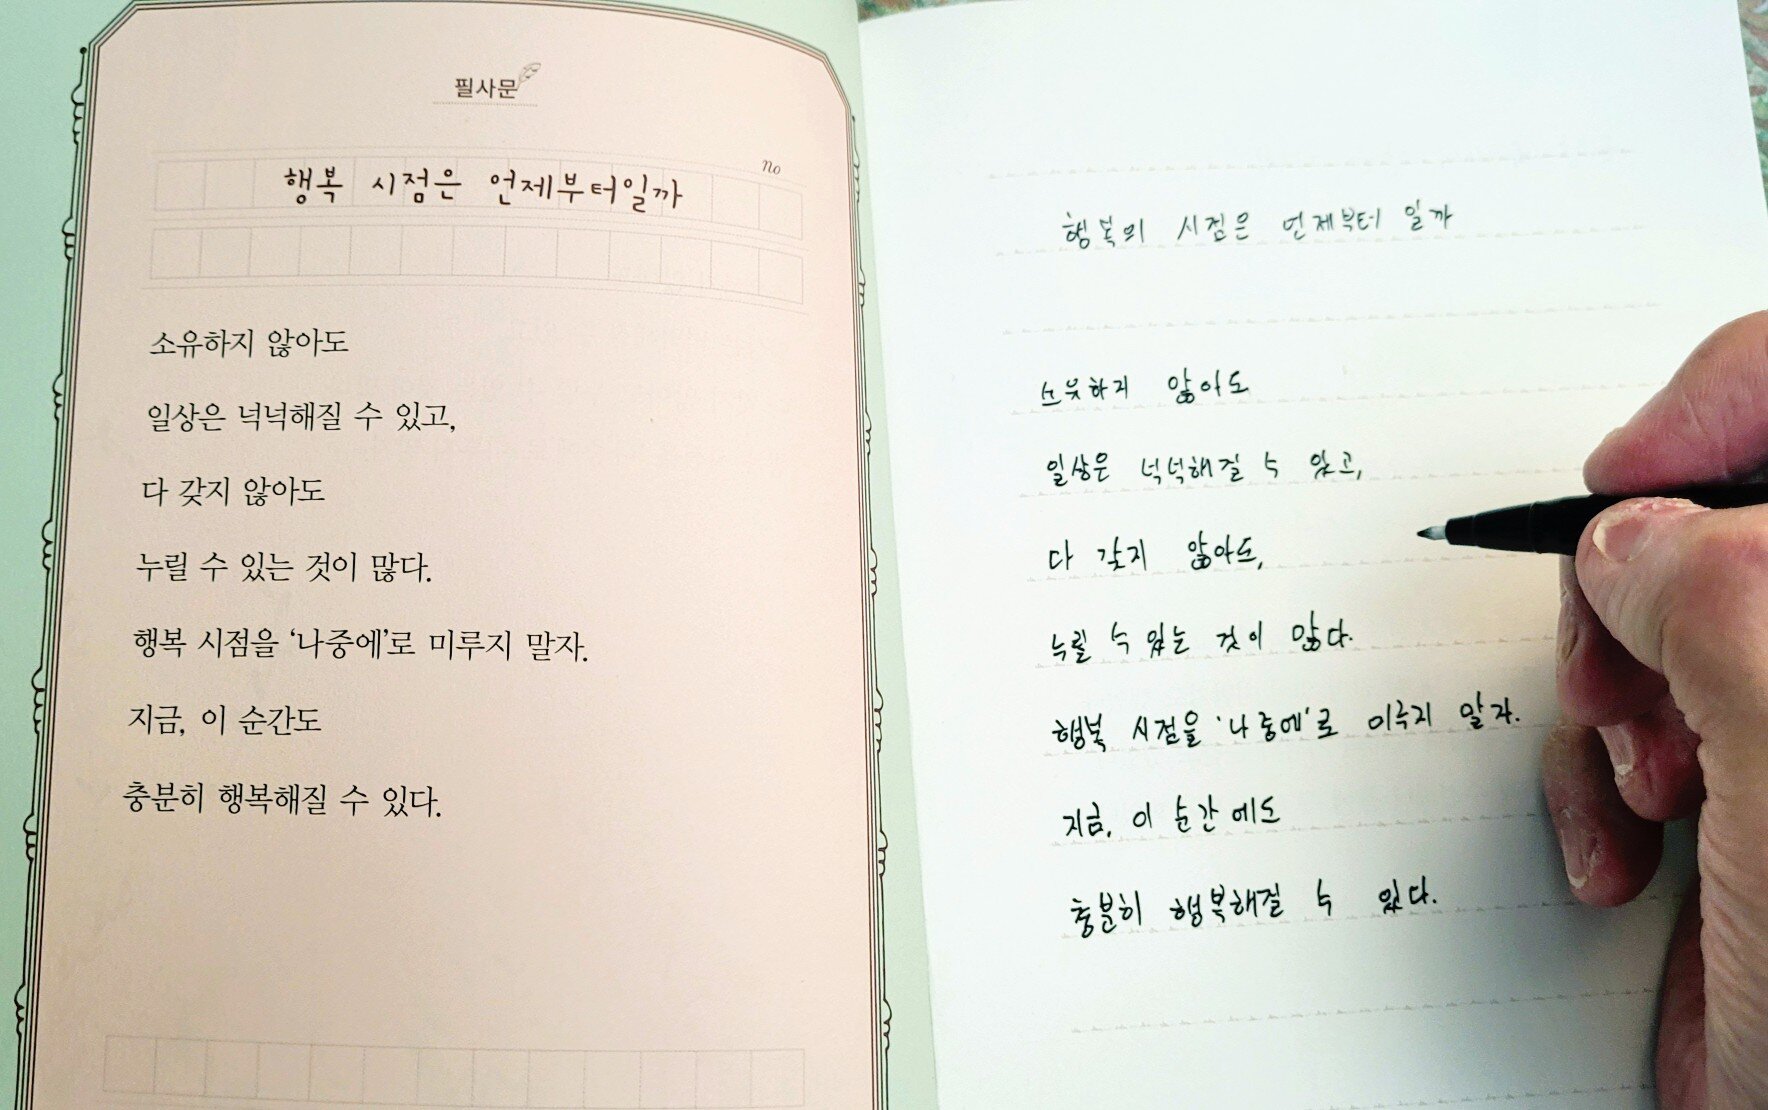 필사문
no
행복 시점은 언제부터일까
소유하지 않아도
일상은 넉넉해질 수 있고,
다 갖지 않아도
누릴 수 있는 것이 많다.
행복 시점을 ‘나중에’로 미루지 말자.
지금, 이 순간도
충분히 행복해질 수 있다.
행복의 시점은 언제부터 일까
소유하지 않아도
일상은 넉넉해질 수 있고,
다 갖지 않아도,
누릴 수 있는 것이 많다.
행복 시점을 '나중에'로 미루지 말자.
지금, 이 순간에도
충분히 행복해질 수 있다.